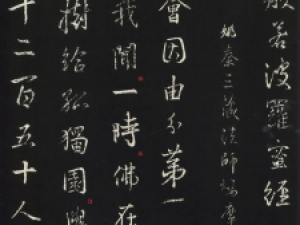 般若波羅蜜經
姚秦三藏法師鳩摩
會因由分第一
我聞一時佛在
樹給孤獨園
十二百五十人